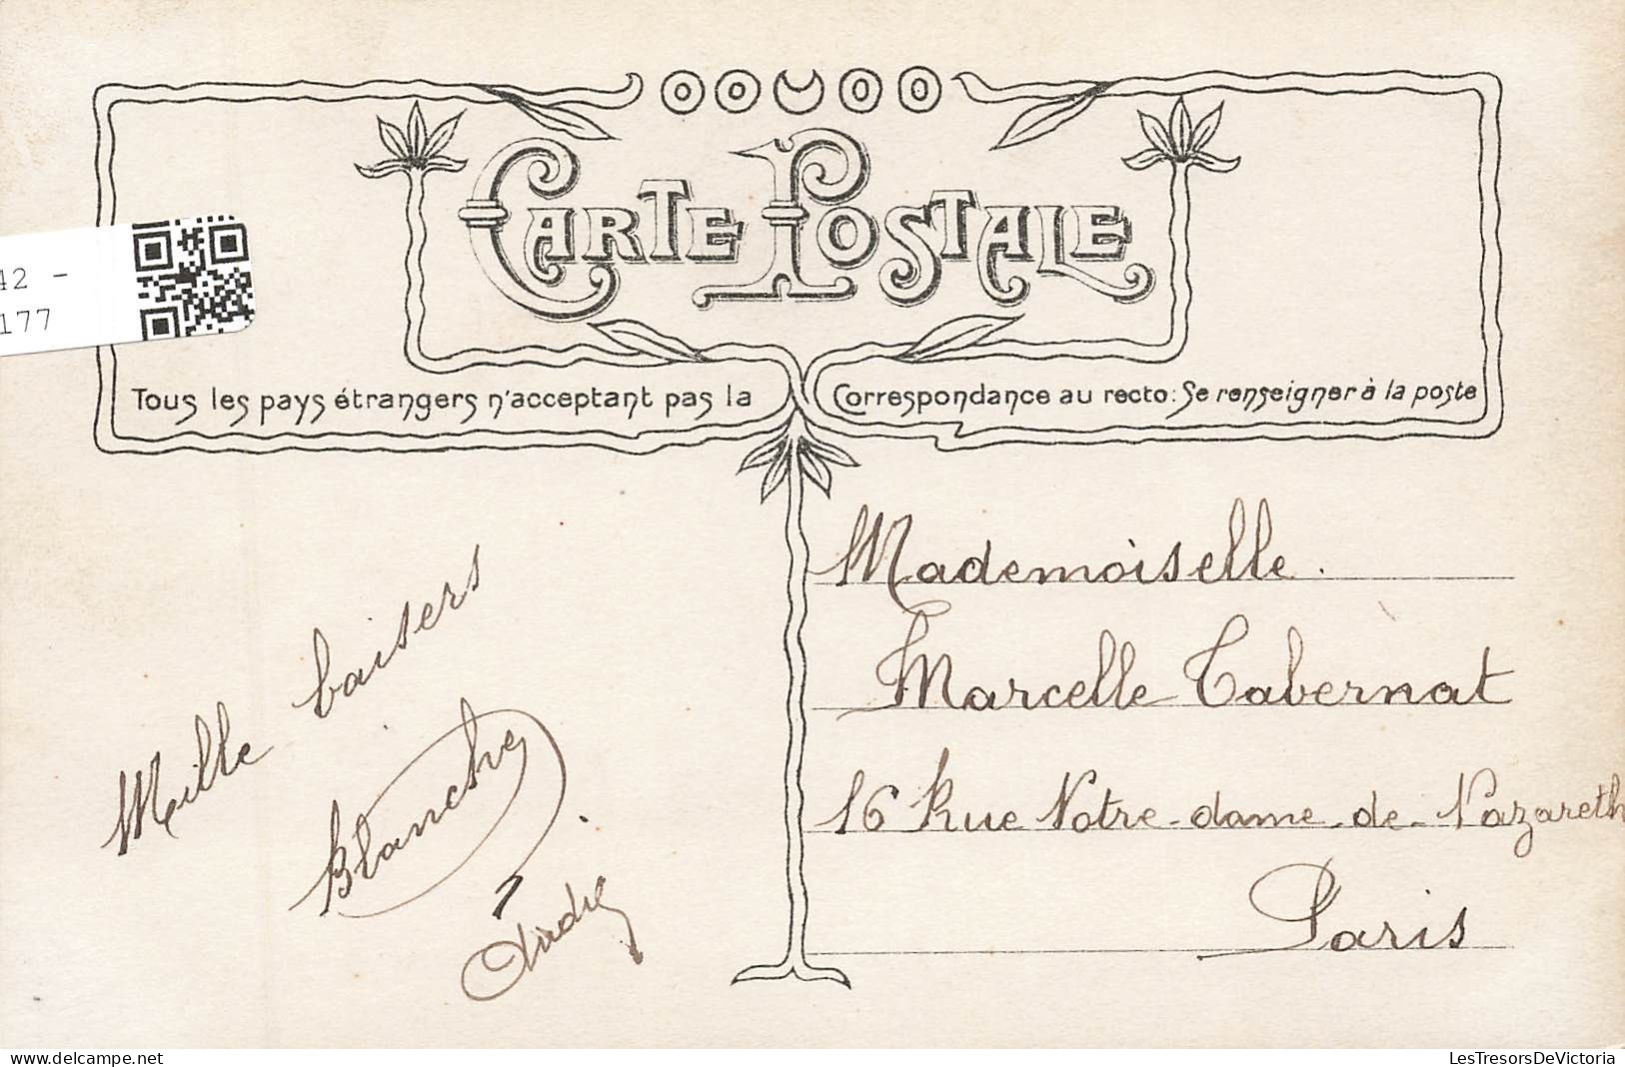 CARTE POSTALE
42 -
177
Tous les pays étrangers n'acceptant pas la Correspondance au recto: Se renseigner à la poste
Mille baisers
Blanche
André
Mademoiselle.
Marcelle Tabernat
16 Rue Notre-dame-de-Nazareth
Paris
delcampe.net
LesTresorsDeVictoria